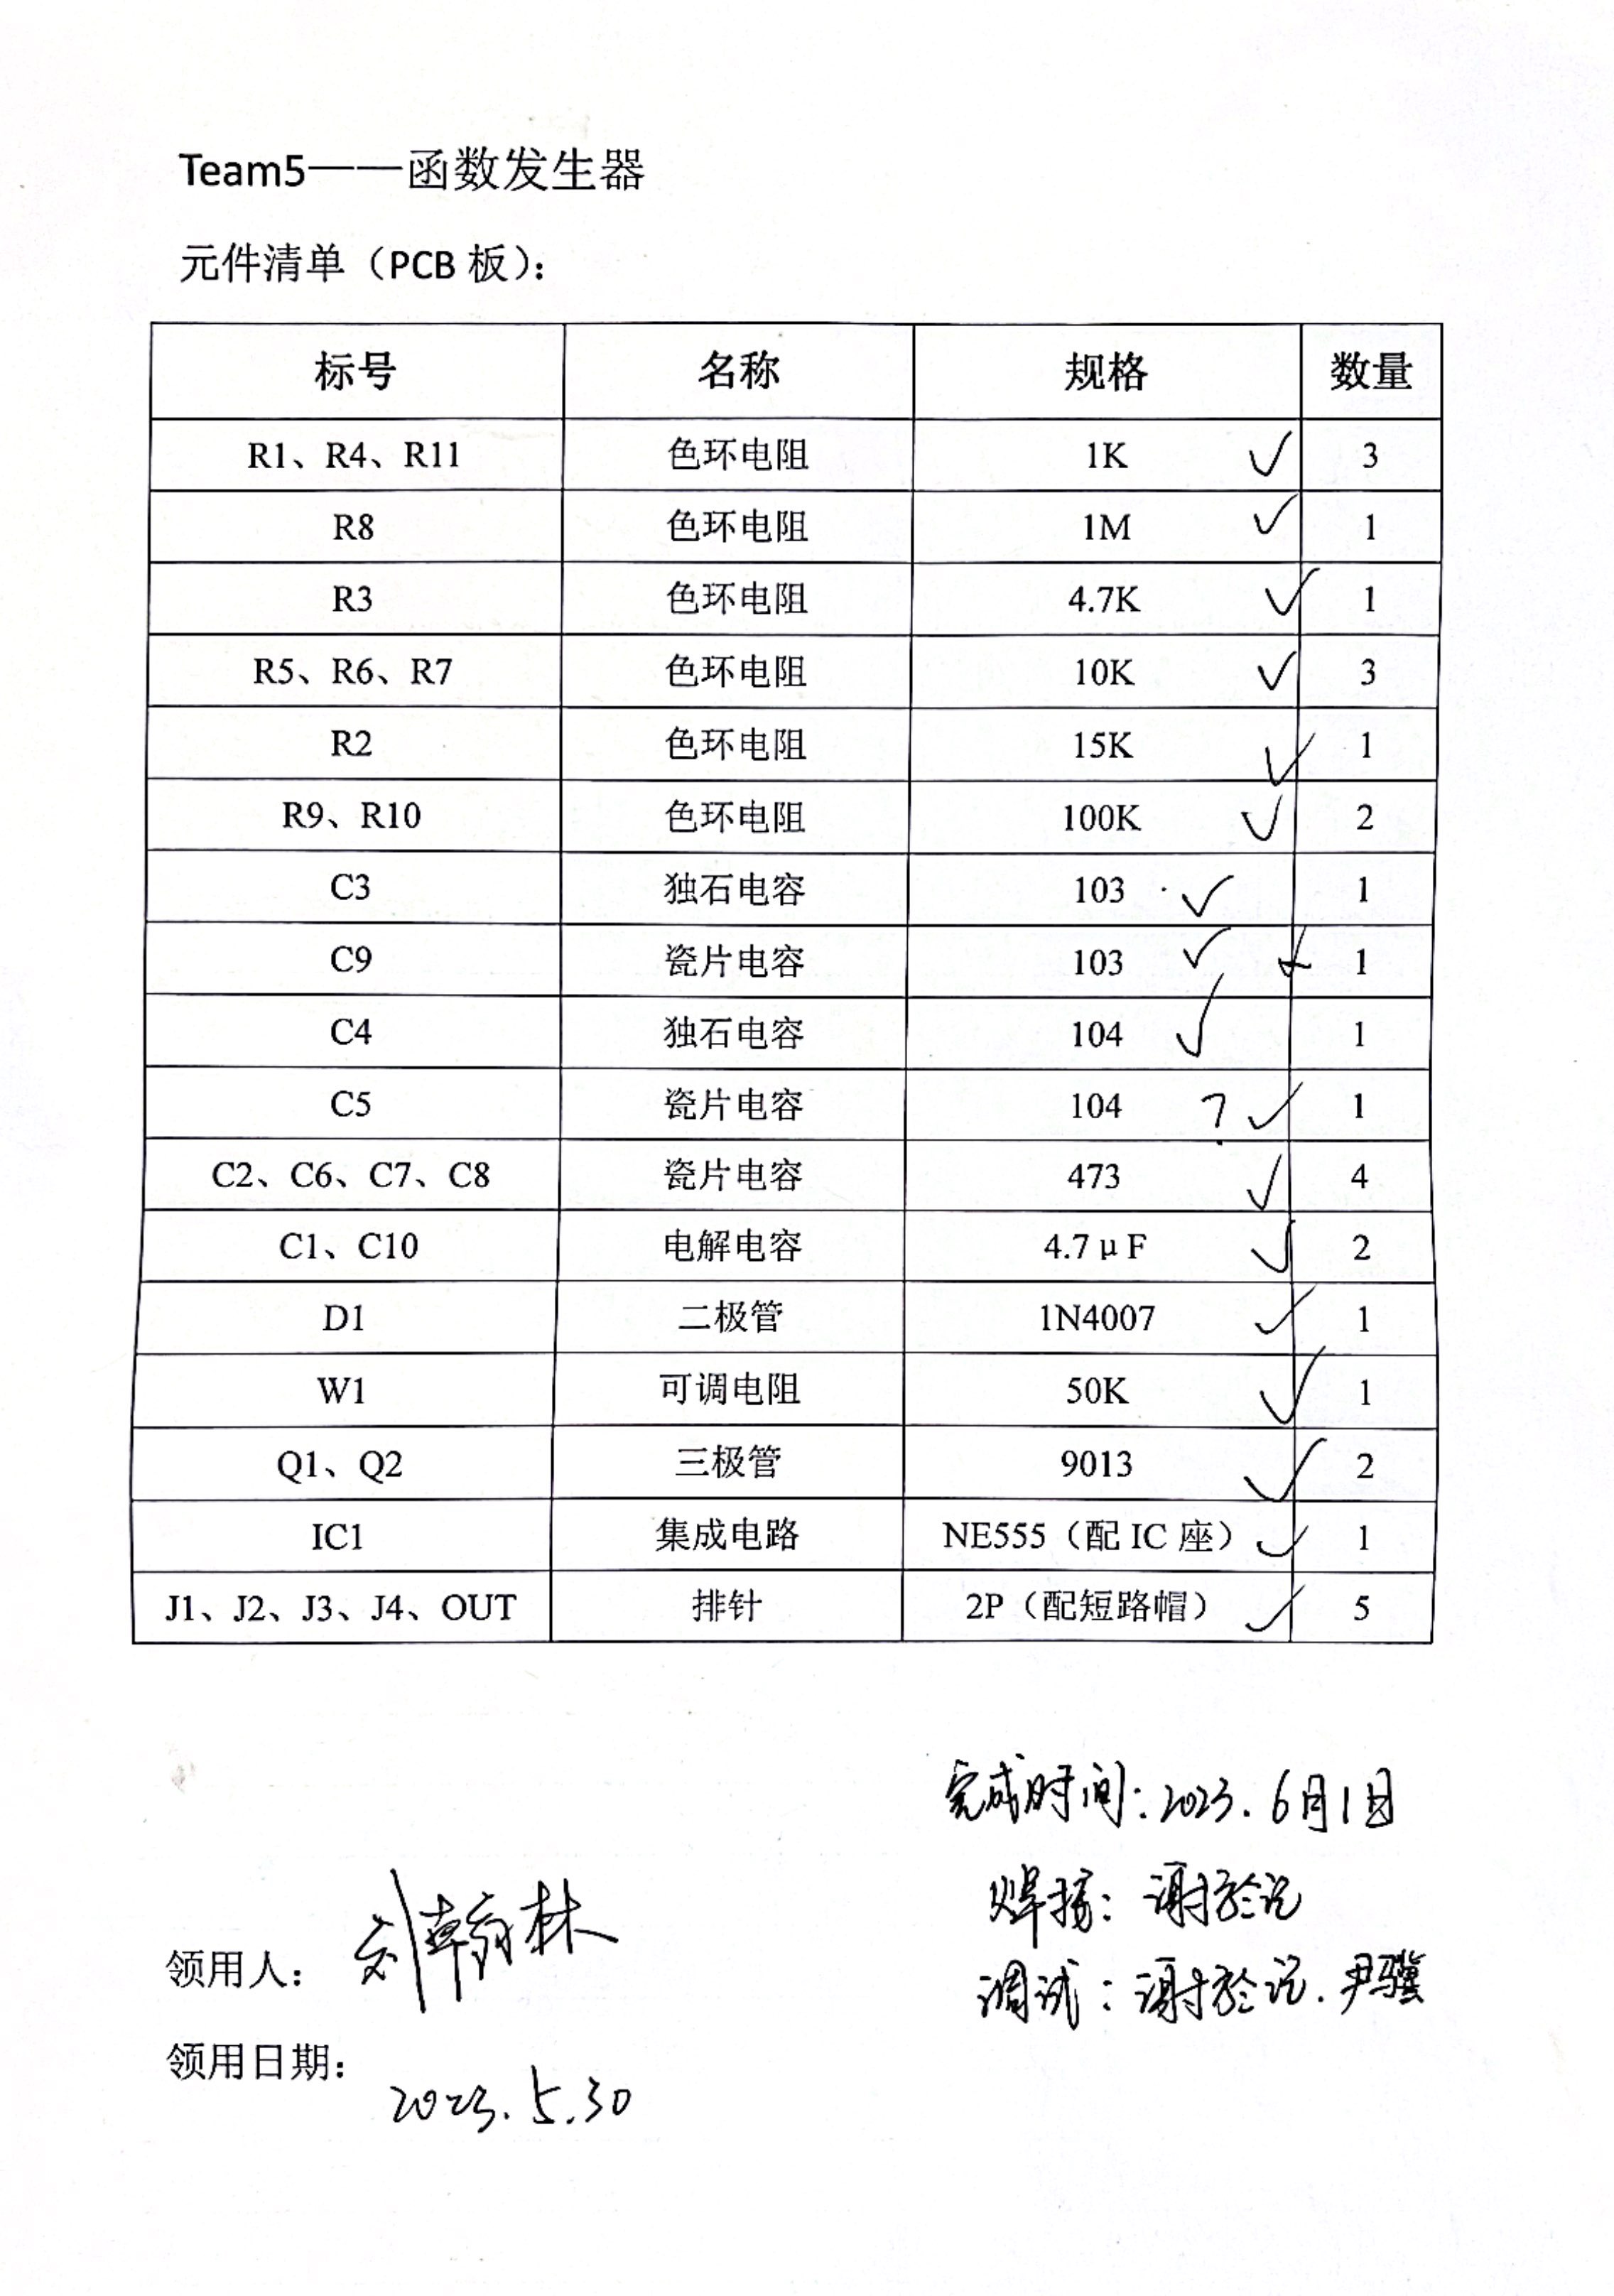 Team5——函数发生器
元件清单（PCB 板）：
标号 名称 规格 数量
R1、R4、R11 色环电阻 1K ✓ 3
R8 色环电阻 1M ✓ 1
R3 色环电阻 4.7K ✓ 1
R5、R6、R7 色环电阻 10K ✓ 3
R2 色环电阻 15K ✓ 1
R9、R10 色环电阻 100K ✓ 2
C3 独石电容 103 ✓ 1
C9 瓷片电容 103 ✓ 1
C4 独石电容 104 ✓ 1
C5 瓷片电容 104 ? ✓ 1
C2、C6、C7、C8 瓷片电容 473 ✓ 4
C1、C10 电解电容 4.7 μ F ✓ 2
D1 二极管 1N4007 ✓ 1
W1 可调电阻 50K ✓ 1
Q1、Q2 三极管 9013 ✓ 2
IC1 集成电路 NE555（配 IC 座） ✓ 1
J1、J2、J3、J4、OUT 排针 2P（配短路帽） ✓ 5
完成时间：2023. 6月1日
焊接：谢
领用人：刘翰林
调试：谢 . 尹骥
领用日期：2023.5.30